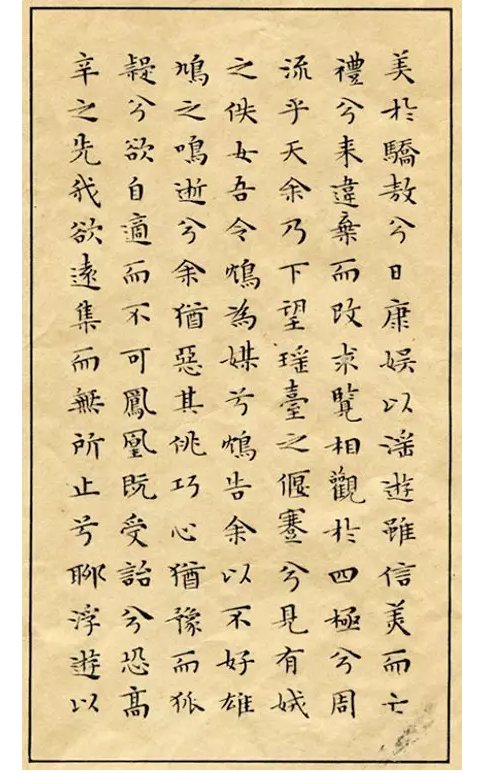 美於驕敖兮日康娱以淫遊雖信美而亡
禮兮来違棄而改求覽相觀於四極兮周
流乎天余乃下望瑶臺之偃蹇兮見有娀
之佚女吾令鴆為媒兮鴆告余以不好雄
鳩之鳴逝兮余猶惡其佻巧心猶豫而狐
疑兮欲自適而不可鳳凰既受詒兮恐髙
辛之先我欲遠集而無所止兮聊浮遊以